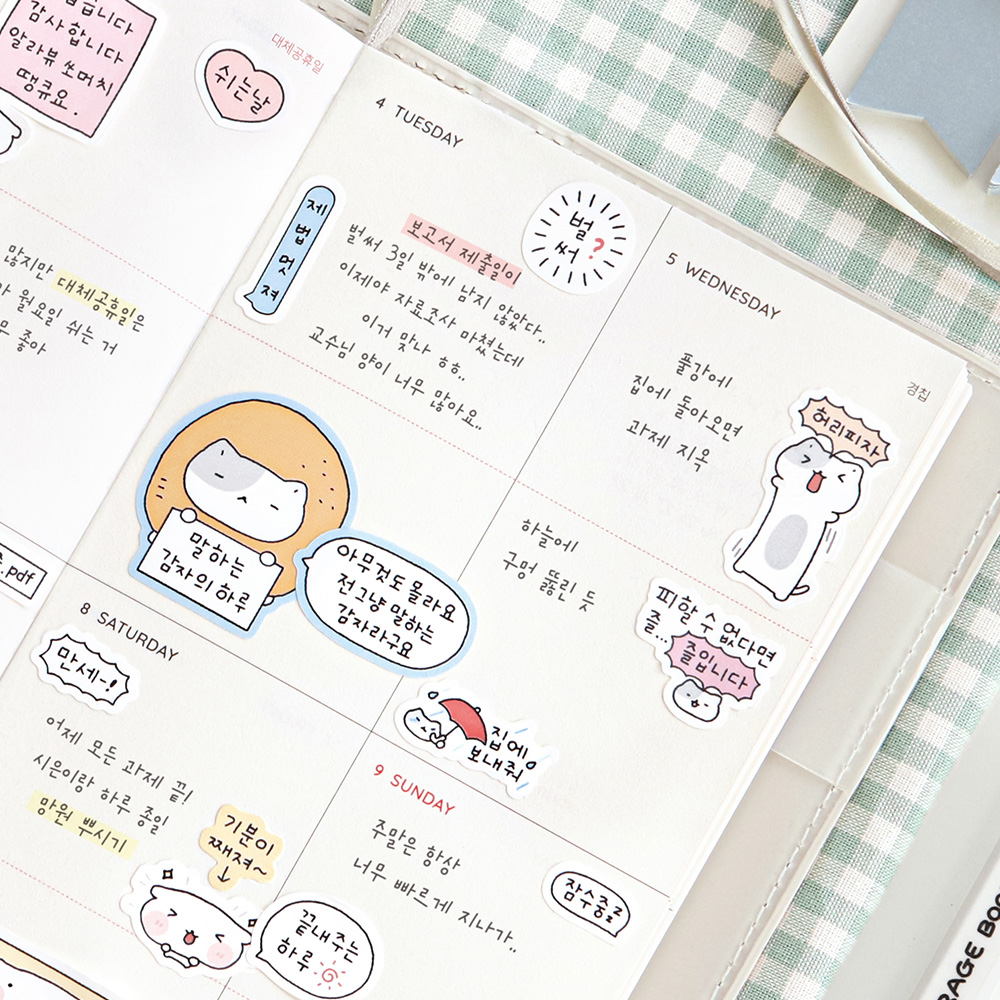 감사합니다
알라뷰 쏘머치
땡큐요.
대체공휴일
쉬는날
많지만 대체공휴일은
월요일 쉬는 거
좋아
.pdf
4 TUESDAY
제법 멋져
벌써?
보고서 제출일이
벌써 3일 밖에 남지 않았다..
이제야 자료조사 마쳤는데
이거 맞나 ㅎㅎ..
교수님 양이 너무 많아요..
말하는
감자의 하루
아무것도 몰라요
전 그냥 말하는
감자라구요
5 WEDNESDAY
경칩
풀강에
집에 돌아오면
과제 지옥
허리피자
하늘에
구멍 뚫린 듯
피할 수 없다면
즐...즐입니다
집에
보내줘
8 SATURDAY
만세~!
어제 모든 과제 끝!
시은이랑 하루 종일
망원 뿌시기
기분이
째져~
끝내주는
하루
9 SUNDAY
주말은 항상
너무 빠르게 지나가..
잠수중